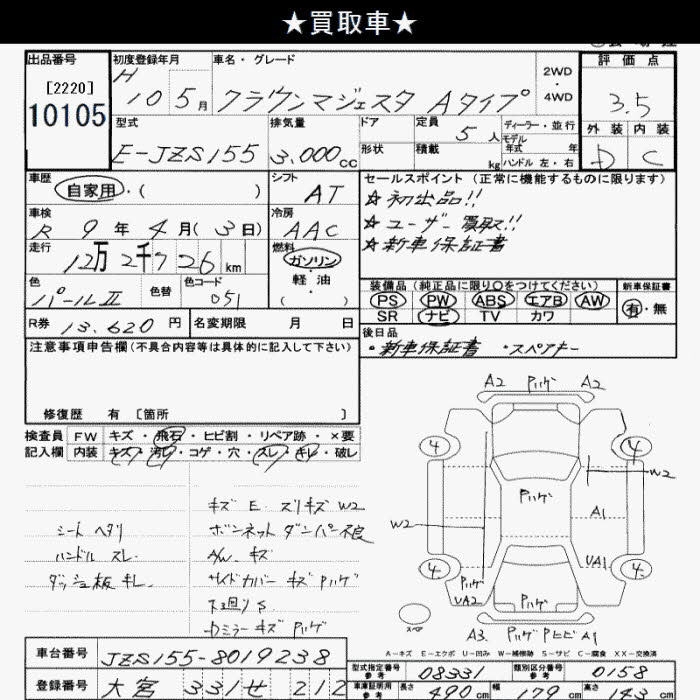 ★買取車★
出品番号
[2220]
10105
初度登録年月
H 10 5月
車名・グレード
クラウンマジェスタ Aタイプ
2WD
・
4WD
評価点
3.5
外装 内装
D C
型式
E-JZS155
排気量
3.000cc
ドア
形状
定員
5人
積載
kg
ディーラー・並行
モデル
年式 年
ハンドル 左・右
車歴
自家用・( )
シフト
AT
車検
R 9年4月(3日)
冷房
AAC
走行
12万2千726km
燃料
ガソリン
・
軽油
( )
色
パールⅡ
色替
色コード
051
R券 13.620円
名変期限 月 日
セールスポイント(正常に機能するものに限ります)
☆初出品!!
☆ユーザー買取!!
☆新車保証書
装備品(純正品に限り○をつけてください)
PS PW ABS エアB AW
SR ナビ TV カワ
新車保証書
有・無
後日品
・新車保証書 ・スペアキー
注意事項申告欄(不具合内容等は具体的に記入して下さい)
修復歴 有 〔箇所 〕
検査員
記入欄
FW キズ・飛石・ヒビ割・リペア跡・×要
内装 キズ・汚レ・コゲ・穴・スレ・キレ・破レ
シート ヘタリ
ハンドル スレ
ダッシュ板 キレ
キズ E ズリキズ W2
ボンネットダンパー不良
A/W キズ
サイドカバー キズ Pハゲ
下廻り S
Dミラー キズ Pハゲ
A2 Pハゲ A2
4 4
Pハゲ
W2
W2
A1
UA1
4 4
Pハゲ
UA2
Pハゲ
スペア
A3 Pハゲ PヒビA1
A-キズ E-エクボ U-凹み W-補修跡 S-サビ C-腐食 XX-交換済
車台番号
JZS155-8019238
登録番号
大宮 331せ 212
型式指定番号
参考
08331
類別区分番号
参考
0158
車庫証明用
参考
長さ 490cm
幅 179cm
高さ
cm